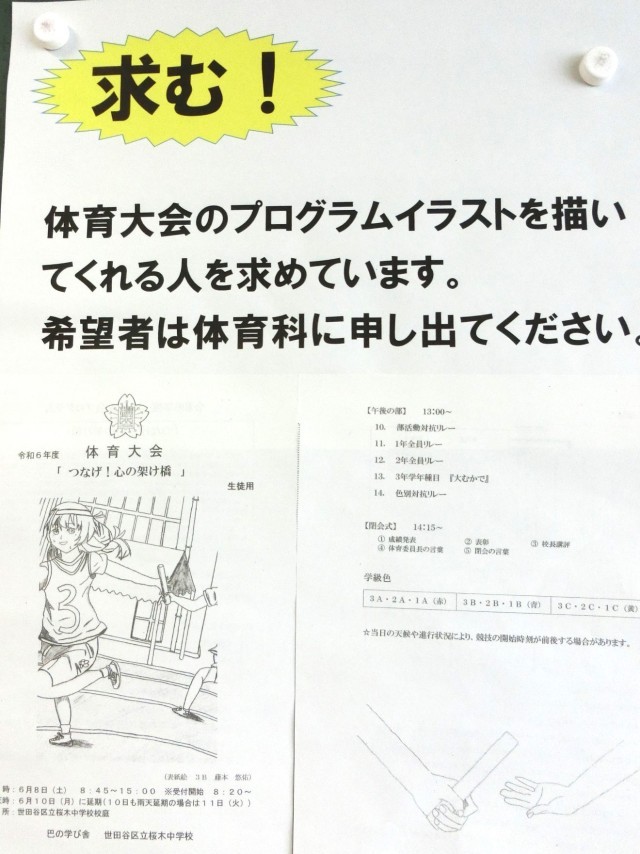 求む！
体育大会のプログラムイラストを描い
てくれる人を求めています。
希望者は体育科に申し出てください。
令和６年度 体育大会
「 つなげ！心の架け橋 」
生徒用
3
(表紙絵 ３Ｂ 藤本 悠佑)
時：６月８日（土） ８：４５～１５：００ ※受付開始 ８：２０～
時：６月１０日（月）に延期（１０日も雨天延期の場合は１１日（火））
所：世田谷区立桜木中学校校庭
巴の学び舎 世田谷区立桜木中学校
【午後の部】 13:00～
10. 部活動対抗リレー
11. 1年全員リレー
12. 2年全員リレー
13. 3年学年種目 『大むかで』
14. 色別対抗リレー
【閉会式】 14:15～
① 成績発表 ② 表彰 ③ 校長講評
④ 体育委員長の言葉 ⑤ 閉会の言葉
学級色
３Ａ・２Ａ・１Ａ（赤） ３Ｂ・２Ｂ・１Ｂ（青） ３Ｃ・２Ｃ・１Ｃ（黄）
☆当日の天候や進行状況により、競技の開始時刻が前後する場合があります。